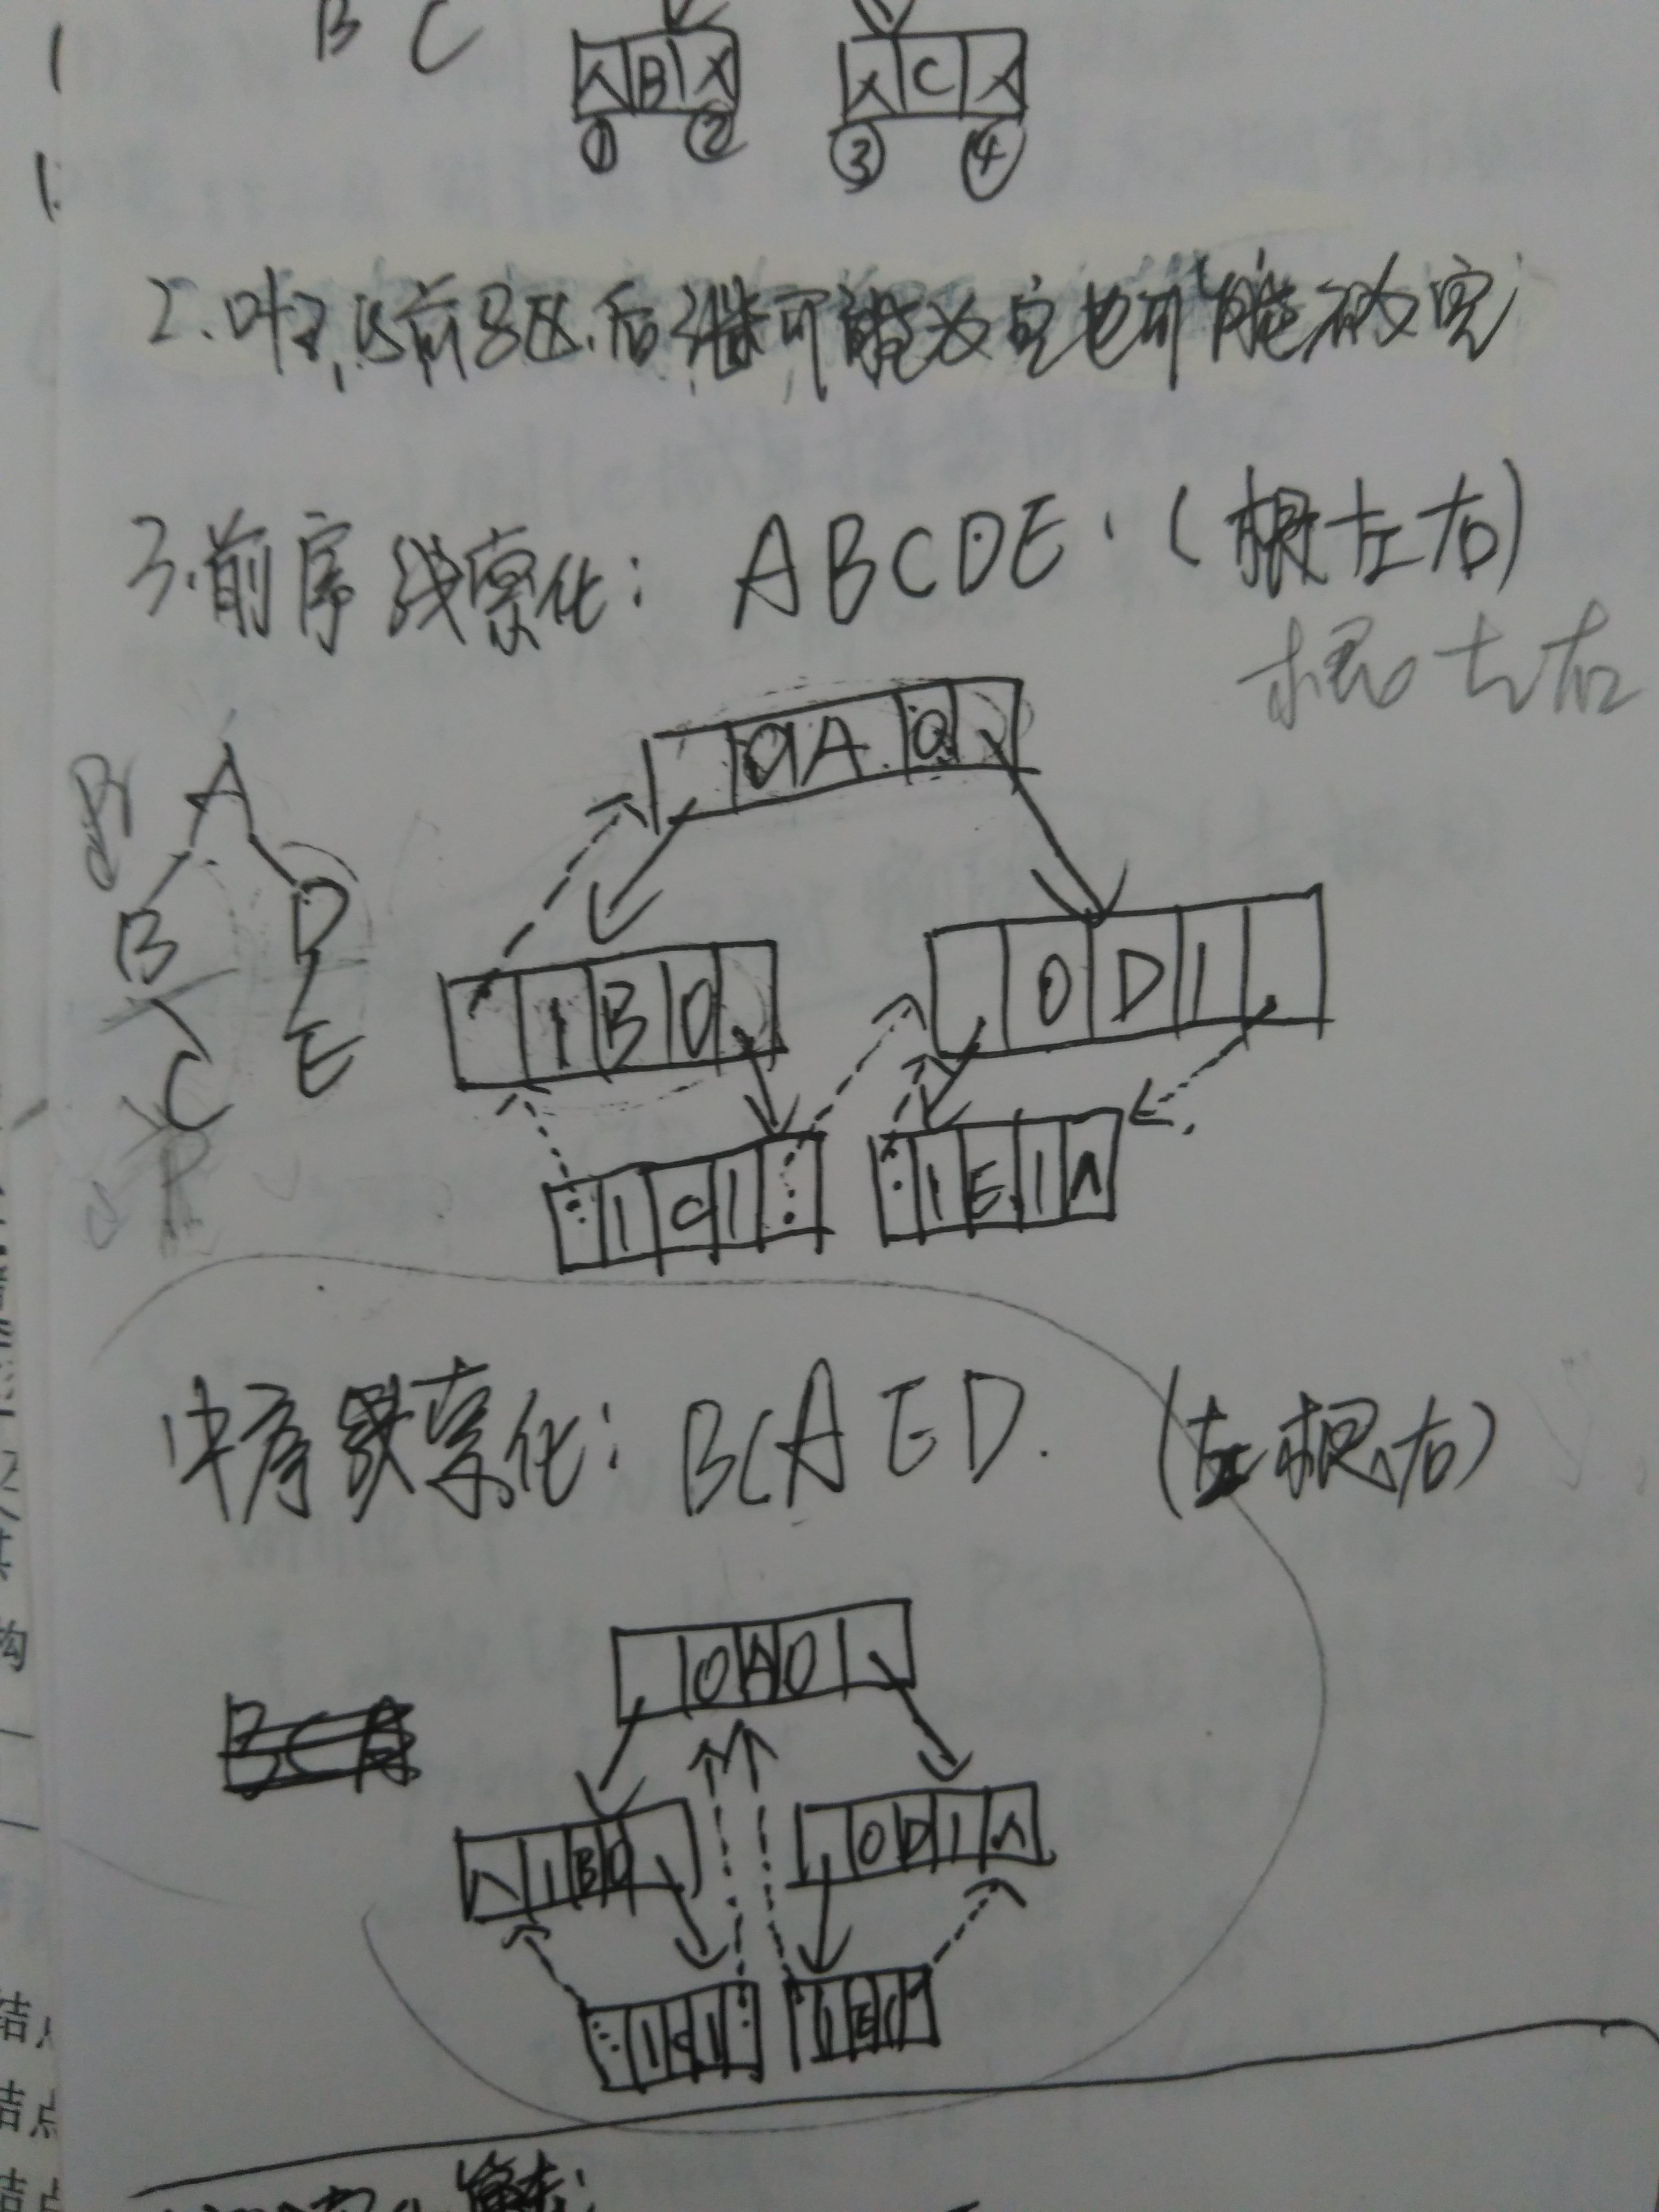 B C
∧ B ∧ ∧ C ∧
① ② ③ ④
2. 叶子的前驱、后继可能为空也可能不为空
3. 前序线索化: ABCDE. (根左右)
根左右
A
B D
C E
0 A 0
1 B 0 0 D 1
1 C 1 1 E 1 ∧
中序线索化: BCAED. (左根右)
0 A 0
BCA
∧ 1 B 0 0 D 1 ∧
1 C 1 1 E 1
构
结
结点
结点